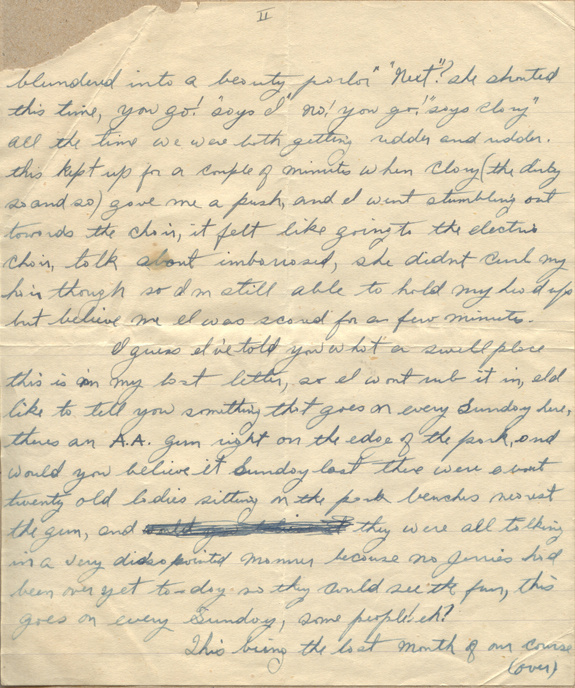 II
blundered into a beauty parlor" "Next"? she shouted
this time, you go! "says I" no! you go!" says Clory"
all the time we were both getting redder and redder.
this kept up for a couple of minutes when Clory (the dirty
so and so) gave me a push, and I went stumbling out
towards the chair, it felt like going to the electric
chair, talk about imbarrosed, she didnt curl my
hair though so I'm still able to hold my head up
but believe me I was scared for a few minutes.
I guess I've told you what a swell place
this is in my last letter, so I wont rub it in, I'd
like to tell you something that goes on every Sunday here,
theres an A.A. gun right on the edge of the park, and
would you believe it Sunday last there were about
twenty old ladies sitting on the park benches nearest
the gun, and they were all talking
in a very dissapointed manner because no Jerries had
been over yet to-day so they could see the fun, this
goes on every Sunday, some people! eh?
This being the last month of our course
(over)